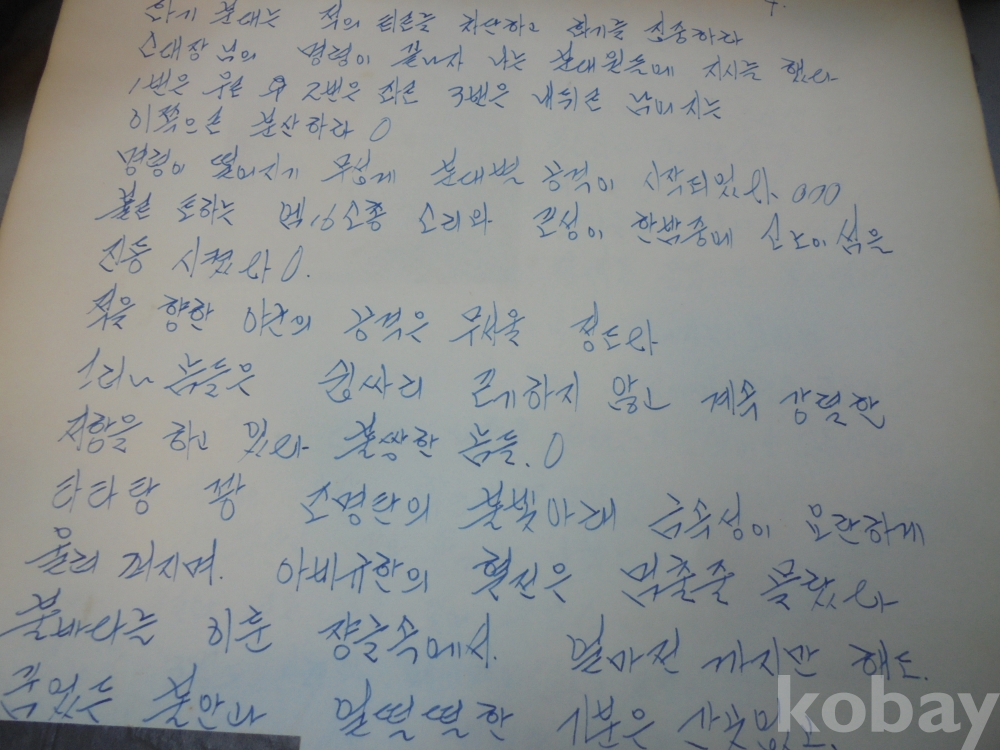 화기 분대는 적의 퇴로를 차단하고 화기를 집중하라
소대장님의 명령이 끝나자 나는 분대원들에 지시를 했다
1번은 우로 2번은 좌로 3번은 내뒤로 남머지는
이쪽으로 분산하라 0
명령이 떨어지기 무섭게 분대별 공격이 시작되었다. 000
불을 토하는 엠16소총 소리와 포성이 한밤중에 신노이섬을
진동 시켰다 0.
적을 향한 야간의 공격은 무서울 정도다
그러나 놈들은 쉽싸리 포기하지 않고 계속 강렬한
저항을 하고 있다 불쌍한 놈들. 0
타타탕 꽝 조명탄의 불빛아래 금속성이 요란하게
울려 퍼지며. 아비규한의 혈전은 멈출줄 몰랐다
불바다를 이룬 쟝글속에서. 얼마전 까지만 해도.
불안과 얼떨떨한 기분은
kobay